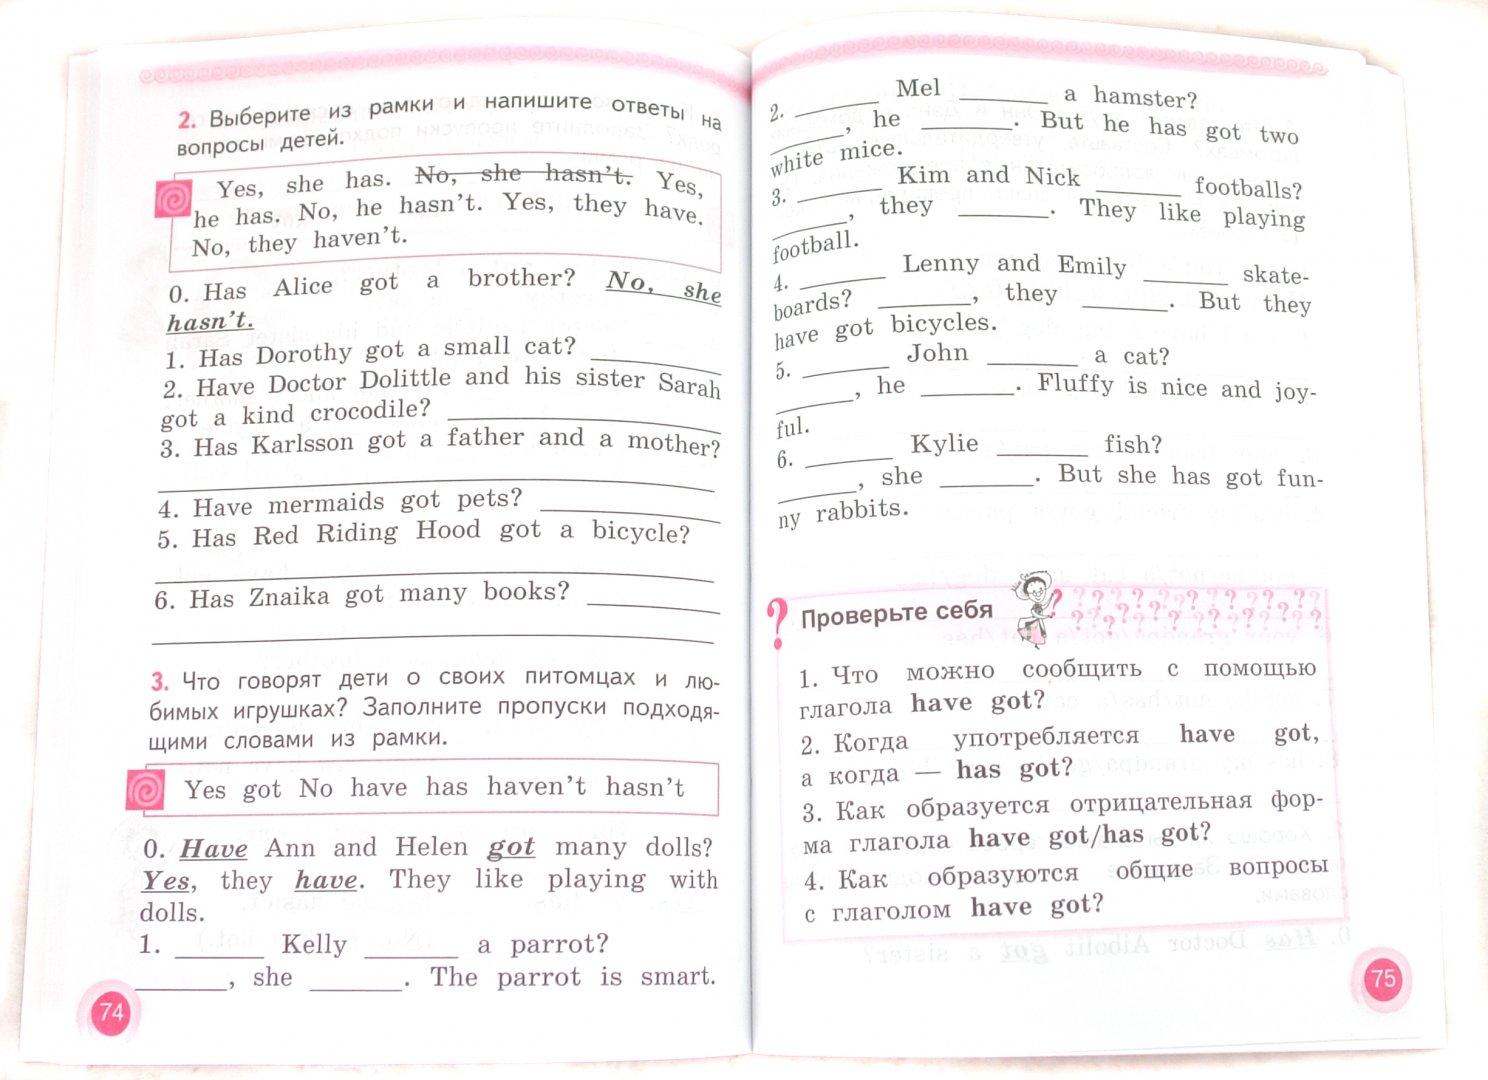 2. Выберите из рамки и напишите ответы на
вопросы детей.
Yes, she has. No, she hasn't. Yes,
he has. No, he hasn't. Yes, they have.
No, they haven't.
0. Has Alice got a brother? No, she
hasn't.
1. Has Dorothy got a small cat? ______
2. Have Doctor Dolittle and his sister Sarah
got a kind crocodile? ______
3. Has Karlsson got a father and a mother?
4. Have mermaids got pets? ______
5. Has Red Riding Hood got a bicycle?
6. Has Znaika got many books? ______
3. Что говорят дети о своих питомцах и лю-
бимых игрушках? Заполните пропуски подходя-
щими словами из рамки.
Yes got No have has haven't hasn't
0. Have Ann and Helen got many dolls?
Yes, they have. They like playing with
dolls.
1. ______ Kelly ______ a parrot?
______, she ______. The parrot is smart.
74
2. ______ Mel ______ a hamster?
______, he ______. But he has got two
white mice.
3. ______ Kim and Nick ______ footballs?
______, they ______. They like playing
football.
4. ______ Lenny and Emily ______ skate-
boards? ______, they ______. But they
have got bicycles.
5. ______ John ______ a cat?
______, he ______. Fluffy is nice and joy-
ful.
6. ______ Kylie ______ fish?
______, she ______. But she has got fun-
ny rabbits.
? Проверьте себя
1. Что можно сообщить с помощью
глагола have got?
2. Когда употребляется have got,
а когда — has got?
3. Как образуется отрицательная фор-
ма глагола have got/has got?
4. Как образуются общие вопросы
с глаголом have got?
75